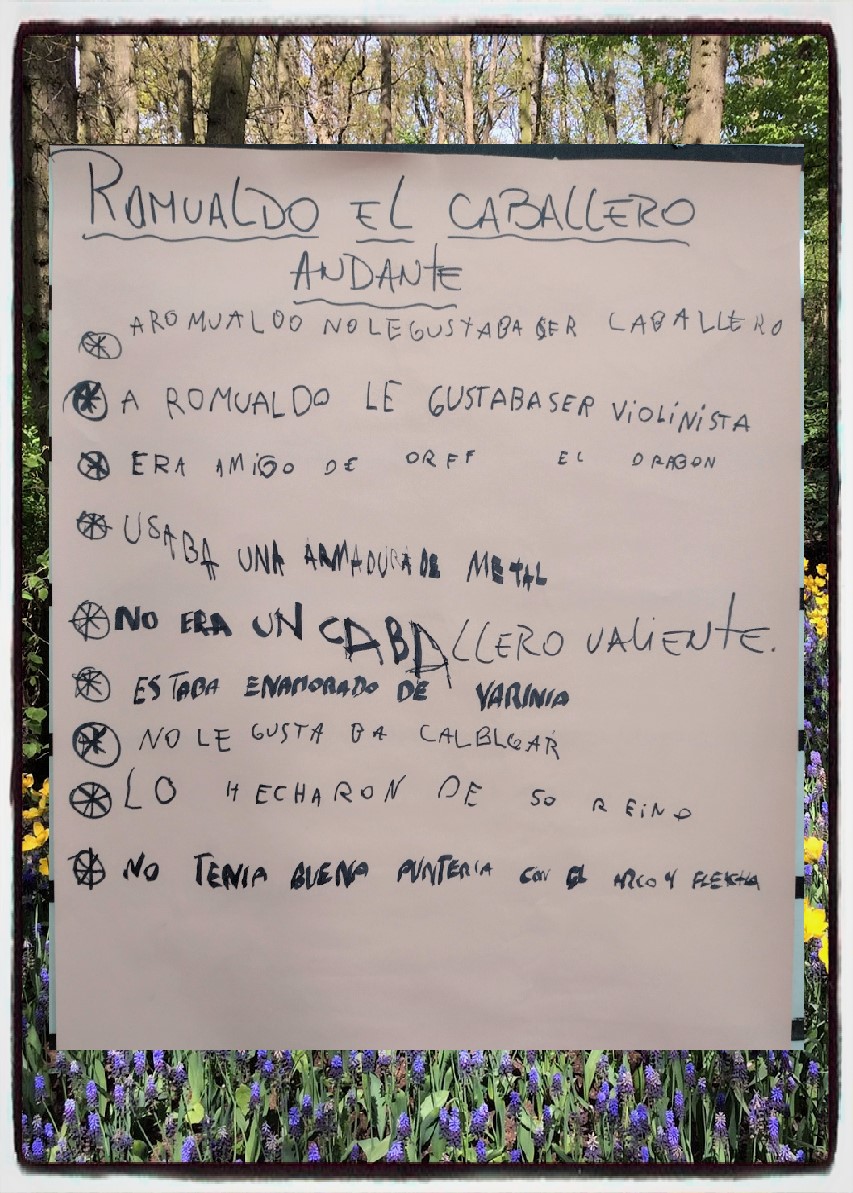 ROMUALDO EL CABALLERO
ANDANTE
AROMUALDO NOLEGUSTABA SER CABALLERO
A ROMUALDO LE GUSTABASER VIOLINISTA
ERA AMIGO DE ORFF EL DRAGON
USABA UNA ARMADURA DE METAL
NO ERA UN CABALLERO VALIENTE.
ESTABA ENAMORADO DE VARINIA
NO LE GUSTA BA CALBLGAR
LO HECHARON DE SO REINO
NO TENIA BUENA PUNTERIA CON EL ARCO Y FLEICHA